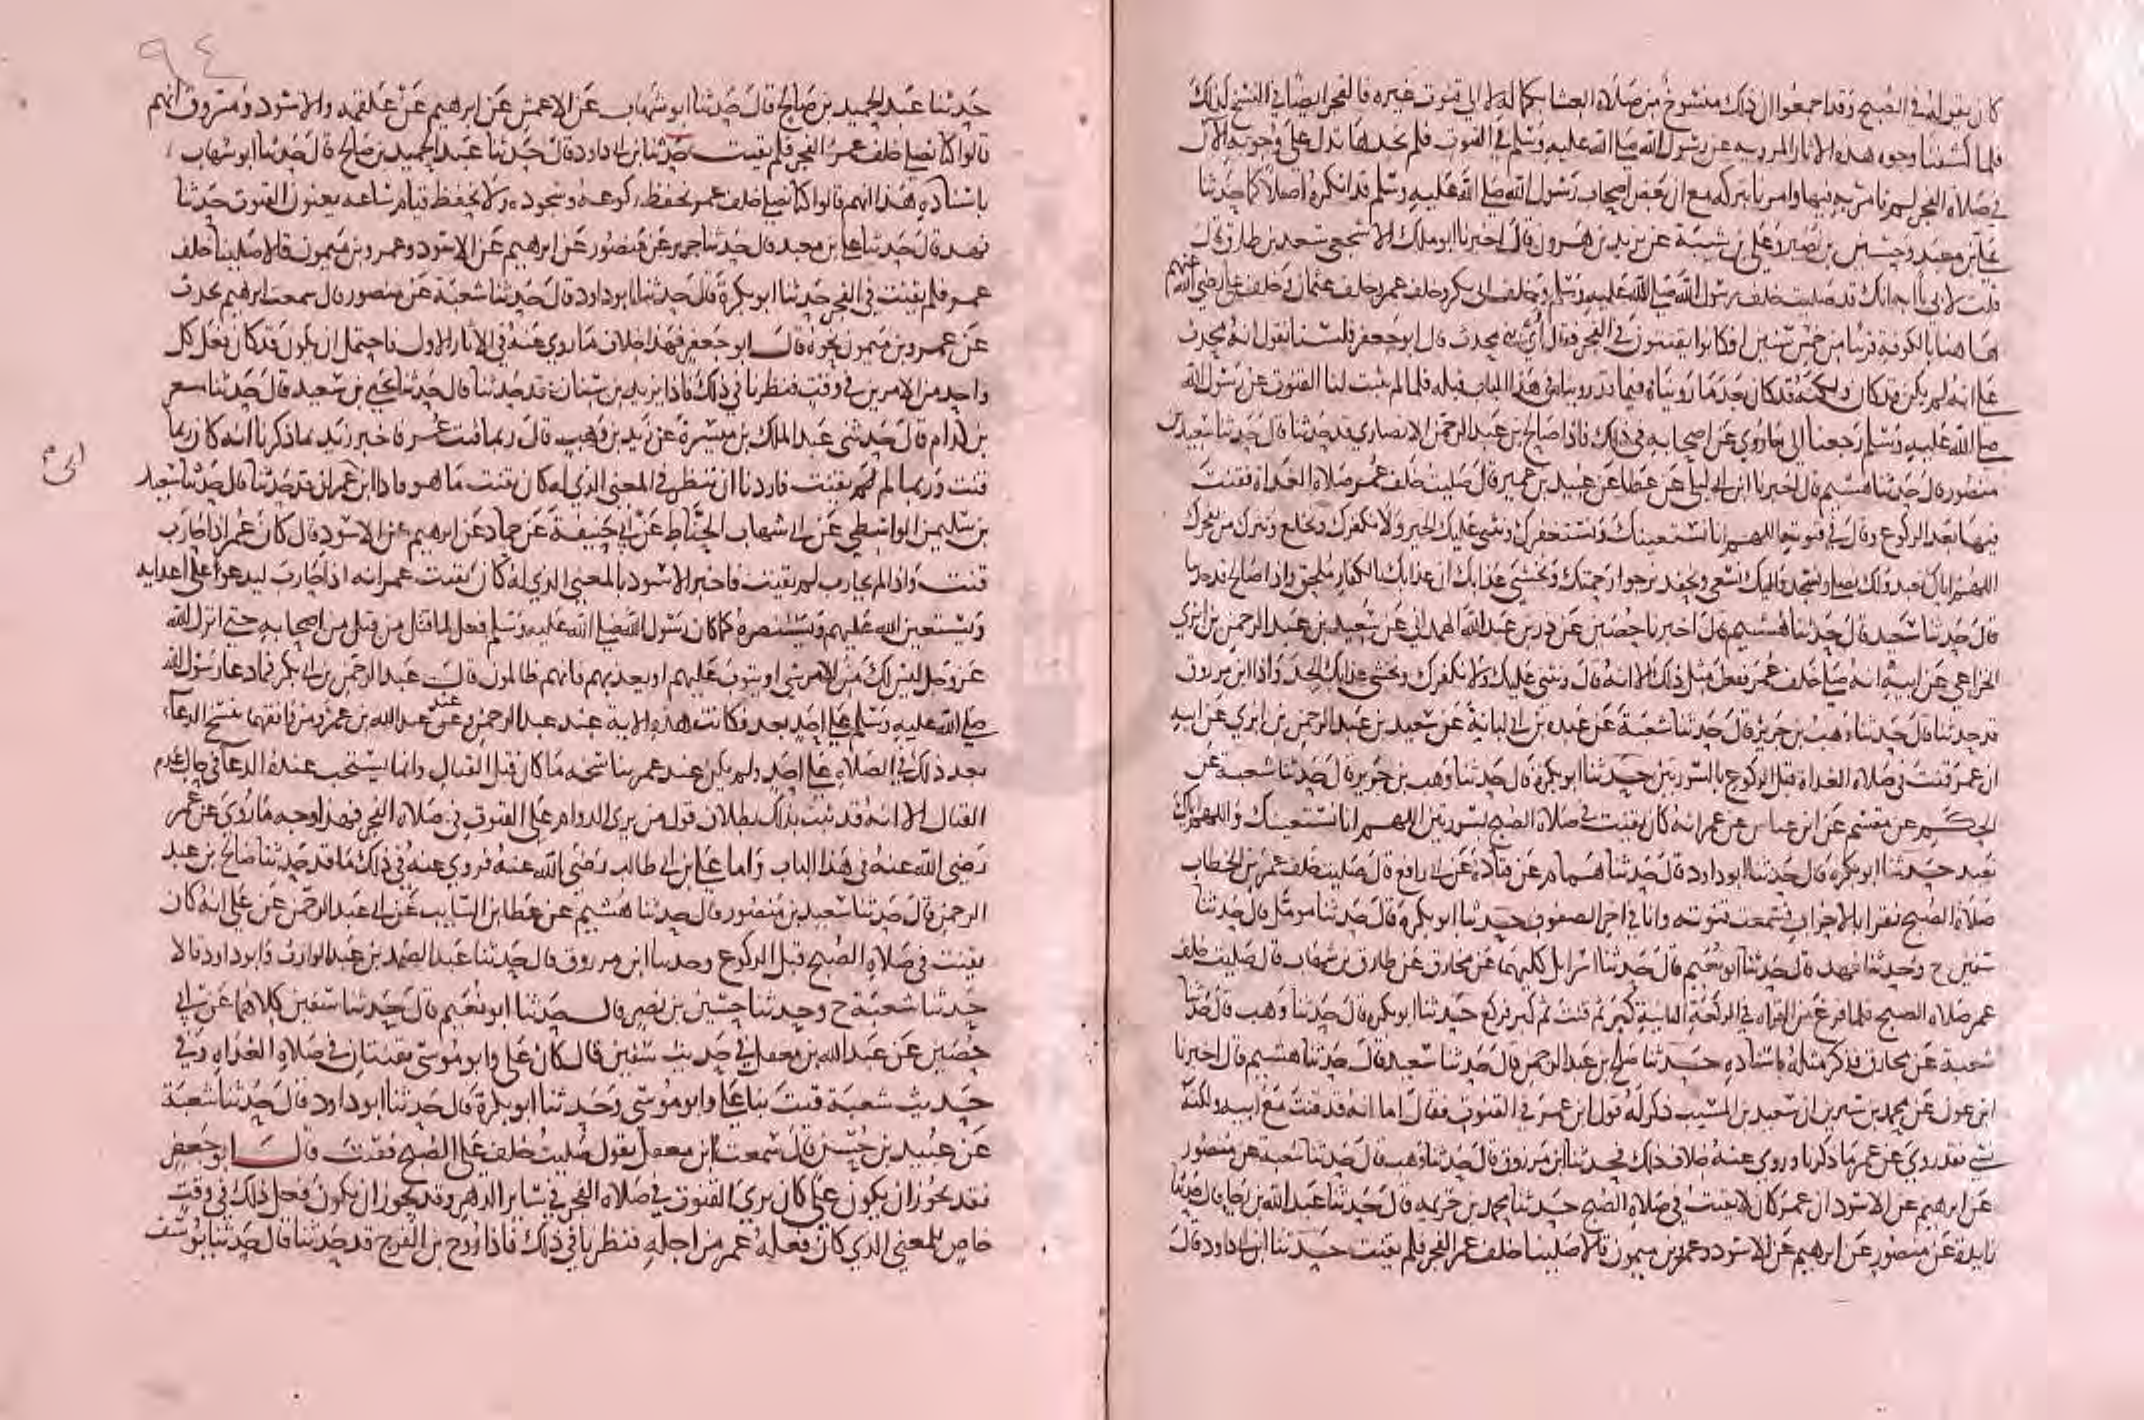 كان يقوله في الصبح وقد اجمعوا ان ذلك منسوخ من صلاة العشا بكماله لا الى قنوت غيره فالفجر ايضا في النسخ كذلك
فلما كشفنا وجوه هذه الاثار المرويه عن رسول الله صلى الله عليه وسلم في القنوت فلم نجدها تدل على وجوبه الآن
في صلاة الفجر لم نامر به فيها وامرنا بتركه مع ان بعض اصحاب رسول الله صلى الله عليه وسلم قد انكره اصلا كما حدثنا
علي بن معبد وحسين بن نصير وعلي بن شيبة عن يزيد بن هرون قال اخبرنا ابو ملك الاشجعي سعد بن طارق قال
قلت لابي يا ابه انك قد صليت خلف رسول الله صلى الله عليه وسلم وخلف ابي بكر وخلف عمر وخلف عثمان وخلف علي رضي الله عنهم
ها هنا بالكوفة قريبا من خمس سنين افكانوا يقنتون في الفجر فقال أي بني محدث قال ابو جعفر فلسنا نقول انه محدث
على انه لم يكن قد كان ولكنه قد كان بعد ما رويناه فيما قد رويناه في هذا الباب قبله فلما لم يثبت لنا القنوت عن رسول الله
صلى الله عليه وسلم رجعنا الى ما روي عن اصحابه في ذلك فاذا صالح بن عبد الرحمن الانصاري قد حدثنا قال حدثنا سعيد بن
منصور قال حدثنا هشيم قال اخبرنا ابن ابي ليلى عن عطا عن عبيد بن عمير قال صليت خلف عمر صلاة الغداة فقنت
فيها بعد الركوع وقال في قنوته اللهم انا نستعينك ونستغفرك ونثني عليك الخير ولا نكفرك ونخلع ونترك من يفجرك
اللهم اياك نعبد ولك نصلي ونسجد واليك نسعى ونحفد نرجوا رحمتك ونخشى عذابك ان عذابك بالكفار ملحق واذا صالح قد حدثنا
قال حدثنا سعيد قال حدثنا هشيم قال اخبرنا حصين عن ذر بن عبد الله الهمداني عن سعيد بن عبد الرحمن بن ابزي
الخزاعي عن ابيه انه صلى خلف عمر ففعل مثل ذلك الا انه قال ونثني عليك ولا نكفرك ونخشى عذابك الجد واذا ابن مرزوق
قد حدثنا قال حدثنا وهب بن جرير قال حدثنا شعبة عن عبده بن ابي لبابة عن سعيد بن عبد الرحمن بن ابزي عن ابيه
ان عمر قنت في صلاة الغداة قبل الركوع بالسورتين حدثنا ابو بكرة قال حدثنا وهب بن جرير قال حدثنا شعبة عن
الحكم عن مقسم عن ابن عباس عن عمر انه كان يقنت في صلاة الصبح بسورتين اللهم انا نستعينك واللهم اياك
نعبد حدثنا ابو بكرة قال حدثنا ابو داود قال حدثنا همام عن قتادة عن ابي رافع قال صليت خلف عمر بن الخطاب
صلاة الصبح فقرا بالاحزاب فسمعت قنوته وانا في اخر الصفوف حدثنا ابو بكرة قال حدثنا مومل قال حدثنا
سفين ح وحدثنا فهد قال حدثنا ابو نعيم قال حدثنا اسرايل كليهما عن مخارق عن طارق بن شهاب قال صليت خلف
عمر صلاة الصبح فلما فرغ من القراه في الركعة الثانية كبر ثم قنت ثم كبر فركع حدثنا ابو بكرة قال حدثنا وهب قال حدثنا
شعبة عن مخارق فذكر مثله باسناده حدثنا صالح بن عبد الرحمن قال حدثنا سعيد قال حدثنا هشيم قال اخبرنا
ابن عون عن محمد بن سيرين ان سعيد بن المسيب ذكر له قول ابن عمر في القنوت فقال اما انه قد قنت مع ابيه ولكنه
نسي فقد روي عن عمر ما ذكرنا وروي عنه خلاف ذلك فحدثنا ابن مرزوق قال حدثنا وهب قال حدثنا شعبة عن منصور
عن ابرهيم عن الاسود ان عمر كان لا يقنت في صلاة الصبح حدثنا محمد بن خزيمه قال حدثنا عبد الله بن رجا قال حدثنا
زايدة عن منصور عن ابرهيم عن الاسود وعمرو بن ميمون قالا صلينا خلف عمر الفجر فلم يقنت حدثنا ابن ابي داود قال
٩٤
حدثنا عبد الحميد بن صالح قال حدثنا ابو شهاب عن الاعمش عن ابرهيم عن علقمه والاسود ومسروق انهم
قالوا كنا نصلي خلف عمر الفجر فلم يقنت حدثنا ابن ابي داود قال حدثنا عبد الحميد بن صالح قال حدثنا ابو شهاب
باسناده هذا انهم قالوا كنا نصلي خلف عمر نحفظ ركوعه وسجوده ولا نحفظ قيام ساعه يعنون القنوت حدثنا
فهد قال حدثنا علي بن معبد قال حدثنا جرير عن منصور عن ابرهيم عن الاسود وعمرو بن ميمون قالا صلينا خلف
عمر فلم يقنت في الفجر حدثنا ابو بكرة قال حدثنا ابو داود قال حدثنا شعبة عن منصور قال سمعت ابرهيم يحدث
عن عمرو بن ميمون نحوه قال ابو جعفر فهذا خلاف ما روي عنه في الاثار الاول فاحتمل ان يكون قد كان فعل كل
واحد من الامرين في وقت فنظرنا في ذلك فاذا يزيد بن سنان قد حدثنا قال حدثنا يحيى بن سعيد قال حدثنا مسعر
بن كدام قال حدثني عبد الملك بن ميسرة عن زيد بن وهب قال ربما قنت عمر فاخبر زيد بما ذكرنا انه كان ربما
قنت وربما لم يقنت فاردنا ان ننظر في المعنى الذي له كان يقنت ما هو فاذا ابن ابي عمران قد حدثنا قال حدثنا سعيد
بن سليمن الواسطي عن ابي شهاب الحناط عن ابي حنيفة عن حماد عن ابرهيم عن الاسود قال كان عمر اذا حارب
قنت واذا لم يحارب لم يقنت فاخبر الاسود بالمعنى الذي له كان يقنت عمر انه اذا حارب ليدعوا على اعدايه
ويستعين الله عليهم ويستنصره كما كان رسول الله صلى الله عليه وسلم فعل لما قتل من قتل من اصحابه حتى انزل الله
عز وجل ليس لك من الامر شي او يتوب عليهم او يعذبهم فانهم ظالمون قال عبد الرحمن بن ابي بكر فما دعا رسول الله
صلى الله عليه وسلم على احد بعد فكانت هذه الاية عند عبد الرحمن وعند عبد الله بن عمر ومن وافقهما تنسخ الدعآء
بعد ذلك في الصلاة على احد ولم يكن عند عمر بناسخه ما كان قبل القتال وانما يستحب عنده الدعآ في حال عدم
القتال الا انه قد ثبت بذلك بطلان قول من يرى الدوام على القنوت في صلاة الفجر فهذا وجه ما روي عن عمر
رضي الله عنه في هذا الباب واما علي بن ابي طالب رضي الله عنه فروي عنه في ذلك ما قد حدثنا صالح بن عبد
الرحمن قال حدثنا سعيد بن منصور قال حدثنا هشيم عن عطا بن السايب عن ابي عبد الرحمن عن علي انه كان
يقنت في صلاة الصبح قبل الركوع وحدثنا ابن مرزوق قال حدثنا عبد الصمد بن عبد الوارث وابو داود قالا
حدثنا شعبة ح وحدثنا حسين بن نصير قال حدثنا ابو نعيم قال حدثنا سفين كلاهما عن ابي
حصين عن عبد الله بن معقل في حديث سفين قال كان علي وابو موسى يقنتان في صلاة الغداة وفي
حديث شعبة قنت بنا علي وابو موسى وحدثنا ابو بكرة قال حدثنا ابو داود قال حدثنا شعبة
عن عبيد بن حسين قال سمعت ابن معقل يقول صليت خلف علي الصبح فقنت قال ابو جعفر
فقد يجوز ان يكون علي كان يرى القنوت في صلاة الفجر في ساير الدهر وقد يجوز ان يكون فعل ذلك في وقت
خاص للمعنى الذي كان فعله عمر من اجله فنظرنا في ذلك فاذا روح بن الفرج قد حدثنا قال حدثنا يوسف